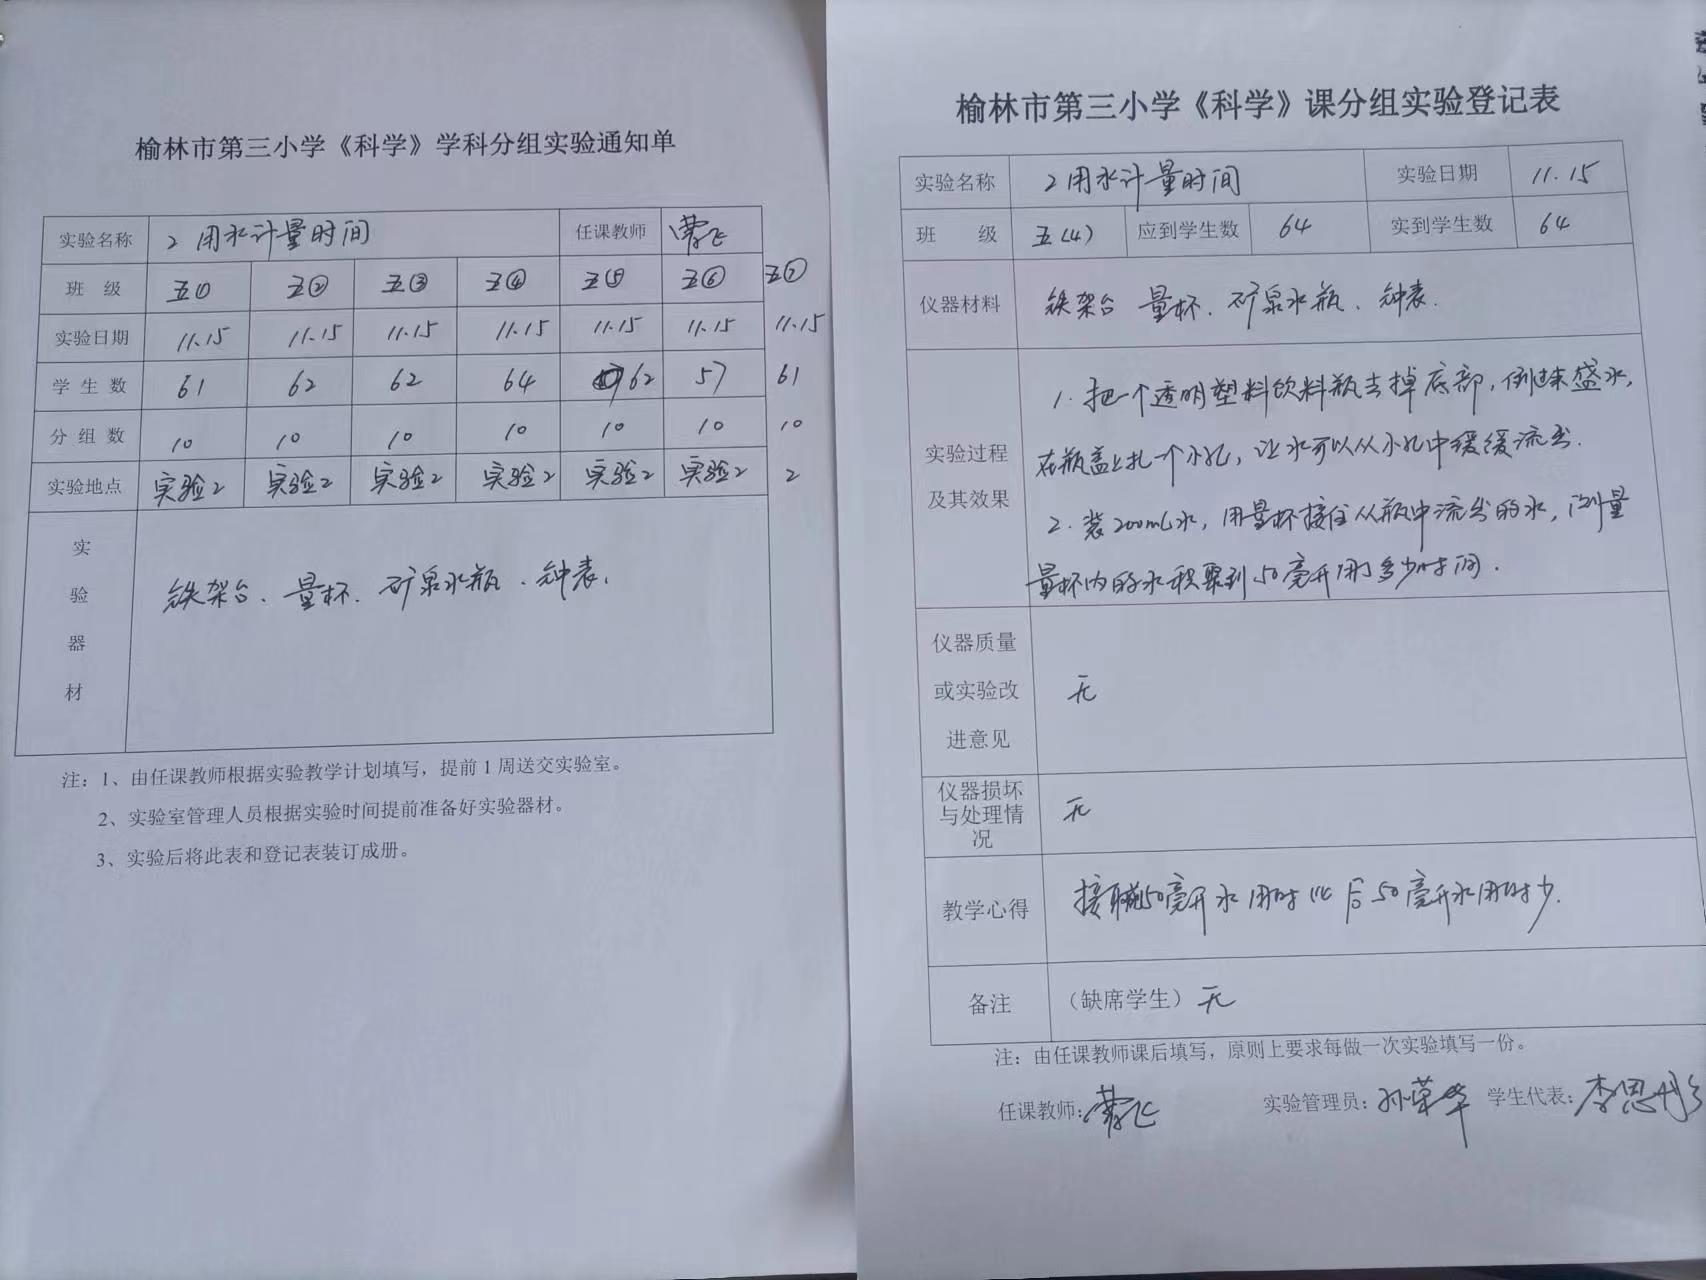 榆林市第三小学《科学》学科分组实验通知单
实验名称 2 用水计量时间 任课教师
班 级 五① 五② 五③ 五④ 五⑤ 五⑥ 五⑦
实验日期 11.15 11.15 11.15 11.15 11.15 11.15 11.15
学 生 数 61 62 62 64 62 57 61
分 组 数 10 10 10 10 10 10 10
实验地点 实验2 实验2 实验2 实验2 实验2 实验2 2
实验器材 铁架台、量杯、矿泉水瓶、钟表.
注：1、由任课教师根据实验教学计划填写，提前1周送交实验室。
2、实验室管理人员根据实验时间提前准备好实验器材。
3、实验后将此表和登记表装订成册。
榆林市第三小学《科学》课分组实验登记表
实验名称 2用水计量时间 实验日期 11.15
班 级 五(4) 应到学生数 64 实到学生数 64
仪器材料 铁架台 量杯、矿泉水瓶、钟表.
实验过程及其效果
1. 把一个透明塑料饮料瓶去掉底部，倒过来盛水，
在瓶盖上扎一个小孔，让水可以从小孔中缓缓流出.
2. 装200mL水，用量杯接住从瓶中流出的水，测量
量杯内的水积聚到50毫升用多少时间.
仪器质量或实验改进意见 无
仪器损坏与处理情况 无
教学心得 50毫升水用时比后50毫升水用时少.
备注 （缺席学生）无
注：由任课教师课后填写，原则上要求每做一次实验填写一份。
任课教师: 实验管理员: 孙荣华 学生代表: 李思彤